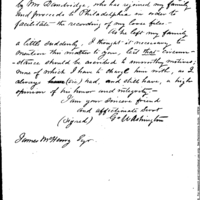 by Mr Dandridge, who has rejoined my family
and proceeds to Philadelphia in order to
facilitate the recording of my
As he left my family
a little suddenly, I thought it necessary to
mention this matter to you, lest that circum-
stance should be ascribed to unworthy motives,
none of which I have to charge him with, as I
always had, and still have, a high
opinion of his honor and integrity.
I am your sincere friend
and affectionate Servt
(signed) Go Washington
James McHenry Esqr